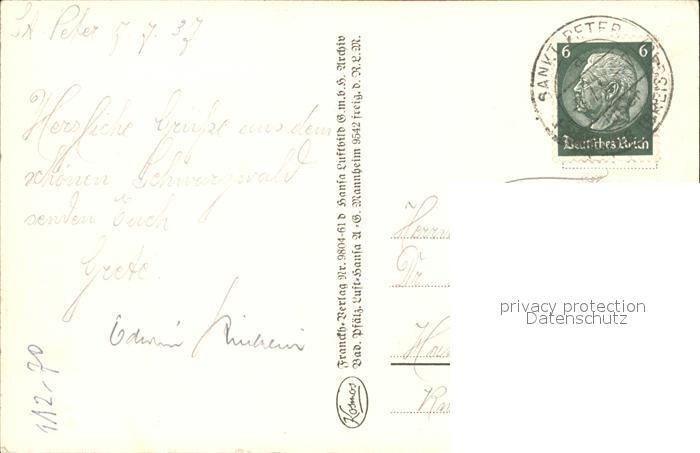 St. Peter 5.7.37
Herzliche Grüße aus dem
schönen Schwarzwald
senden Euch
Grete.
Edwin
112-70
Franckh-Verlag Nr. 9804-61 D Hansa Luftbild G.m.b.H. Archiv
Bad. Pfälz. Luft-Hansa A.-G. Mannheim 9542 freig. d. R.L.M.
Kosmos
SANKT PETER
6 6
Deutsches Reich
Herrn
Dr
privacy protection
Datenschutz